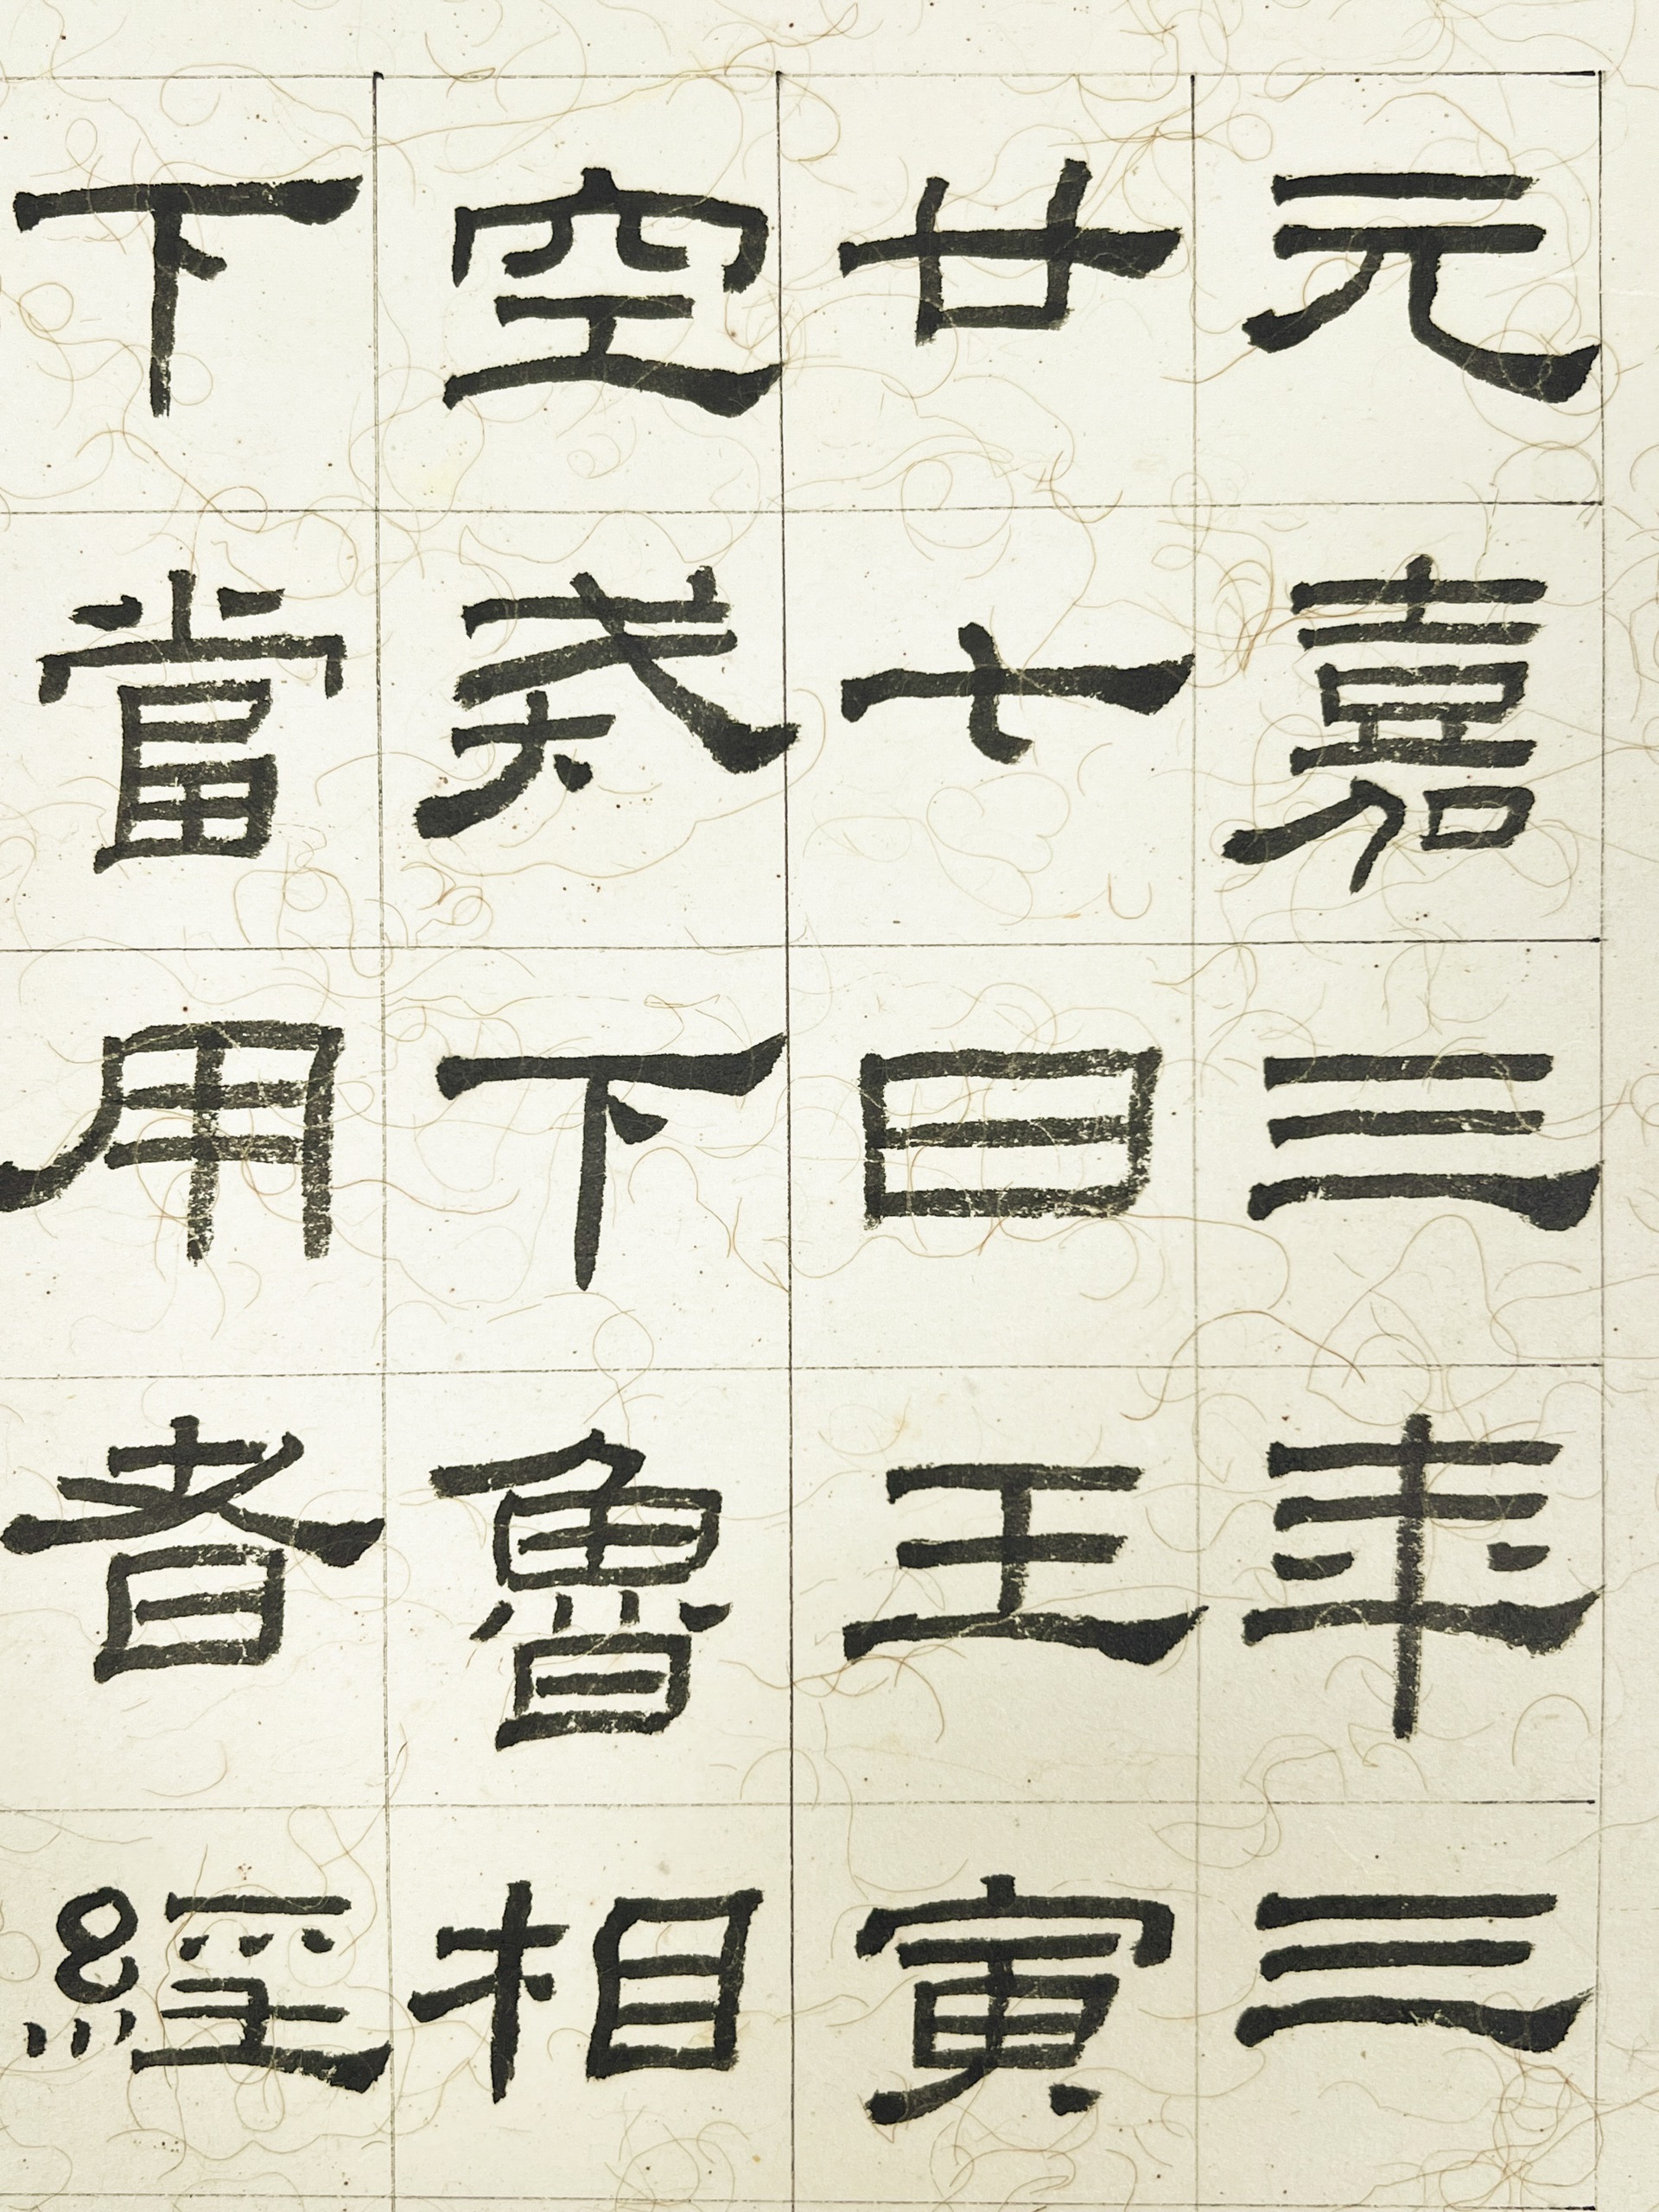 元嘉三年三
廿七日壬寅
空戒下魯相
下當用者經